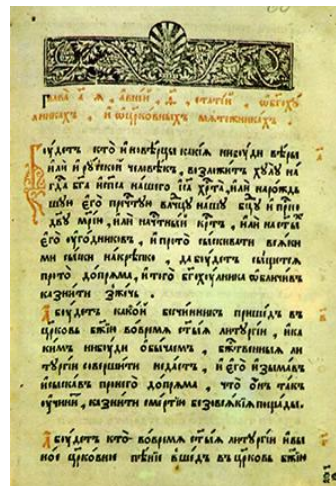 Глава а҃ ѧ, а в ней, ѳ҃, статей, ѡ бг҃оху
лникахъ, и ѡ цр҃ковныхъ мѧтежникахъ.
Беꙋдетъ кто иновѣрцы какиѧ нибꙋди вѣры
или и рꙋской человѣкъ, возложитъ хꙋлꙋ на
гд҃а бг҃а и сп҃са нашего іс҃а хрⷭ҇та, или на рождь
шꙋю его прчⷭ҇тꙋю влⷣчцꙋ нашꙋ бц҃ꙋ и приснѡ
дв҃ꙋ мр҃ию, или на чтⷭ҇ный крⷭ҇тъ, или на ст҃ыхъ
его ꙋгодниковъ, и про то сыскивати всѧки
ми сыски накрѣпко, да бꙋдетъ сыщетсѧ
про то допрѧма, и того бг҃охꙋлника ѡбличивъ
казнити зжечь.
А бꙋдетъ какой безчинникъ пришедъ въ
цр҃ковь бж҃ию во времѧ ст҃ыѧ литꙋргіи, и ка
кимъ нибꙋди ѡбычаемъ, бжⷭ҇твенныѧ ли
тꙋргіи совершити не дастъ, и его изымавъ
и сыскавъ про него допрѧма, что онъ такъ
ꙋчинитъ, казнити смертию безо всѧкіѧ пощады.
А бꙋдетъ кто во времѧ ст҃ыѧ литꙋргіи и въ ы
ное цр҃ковное пѣніе вшедъ въ цр҃ковь бж҃ию